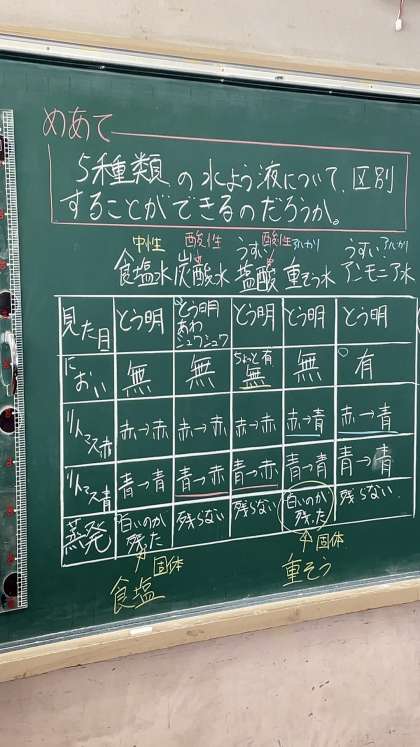 めあて
5種類の水よう液について、区別
することができるのだろうか。
中性 酸性 うすい 酸性 アルカリ うすい アルカリ
食塩水 炭酸水 塩酸 重そう水 アンモニア水
見た目 とう明 とう明 あわ シュワシュワ とう明 とう明 とう明
におい 無 無 ちょっと有 無 無 有
リトマス赤 赤→赤 赤→赤 赤→赤 赤→青 赤→青
リトマス青 青→青 青→赤 青→赤 青→青 青→青
蒸発 白いのが残った 残らない 残らない 白いのが残った 残らない
固体 固体
食塩 重そう